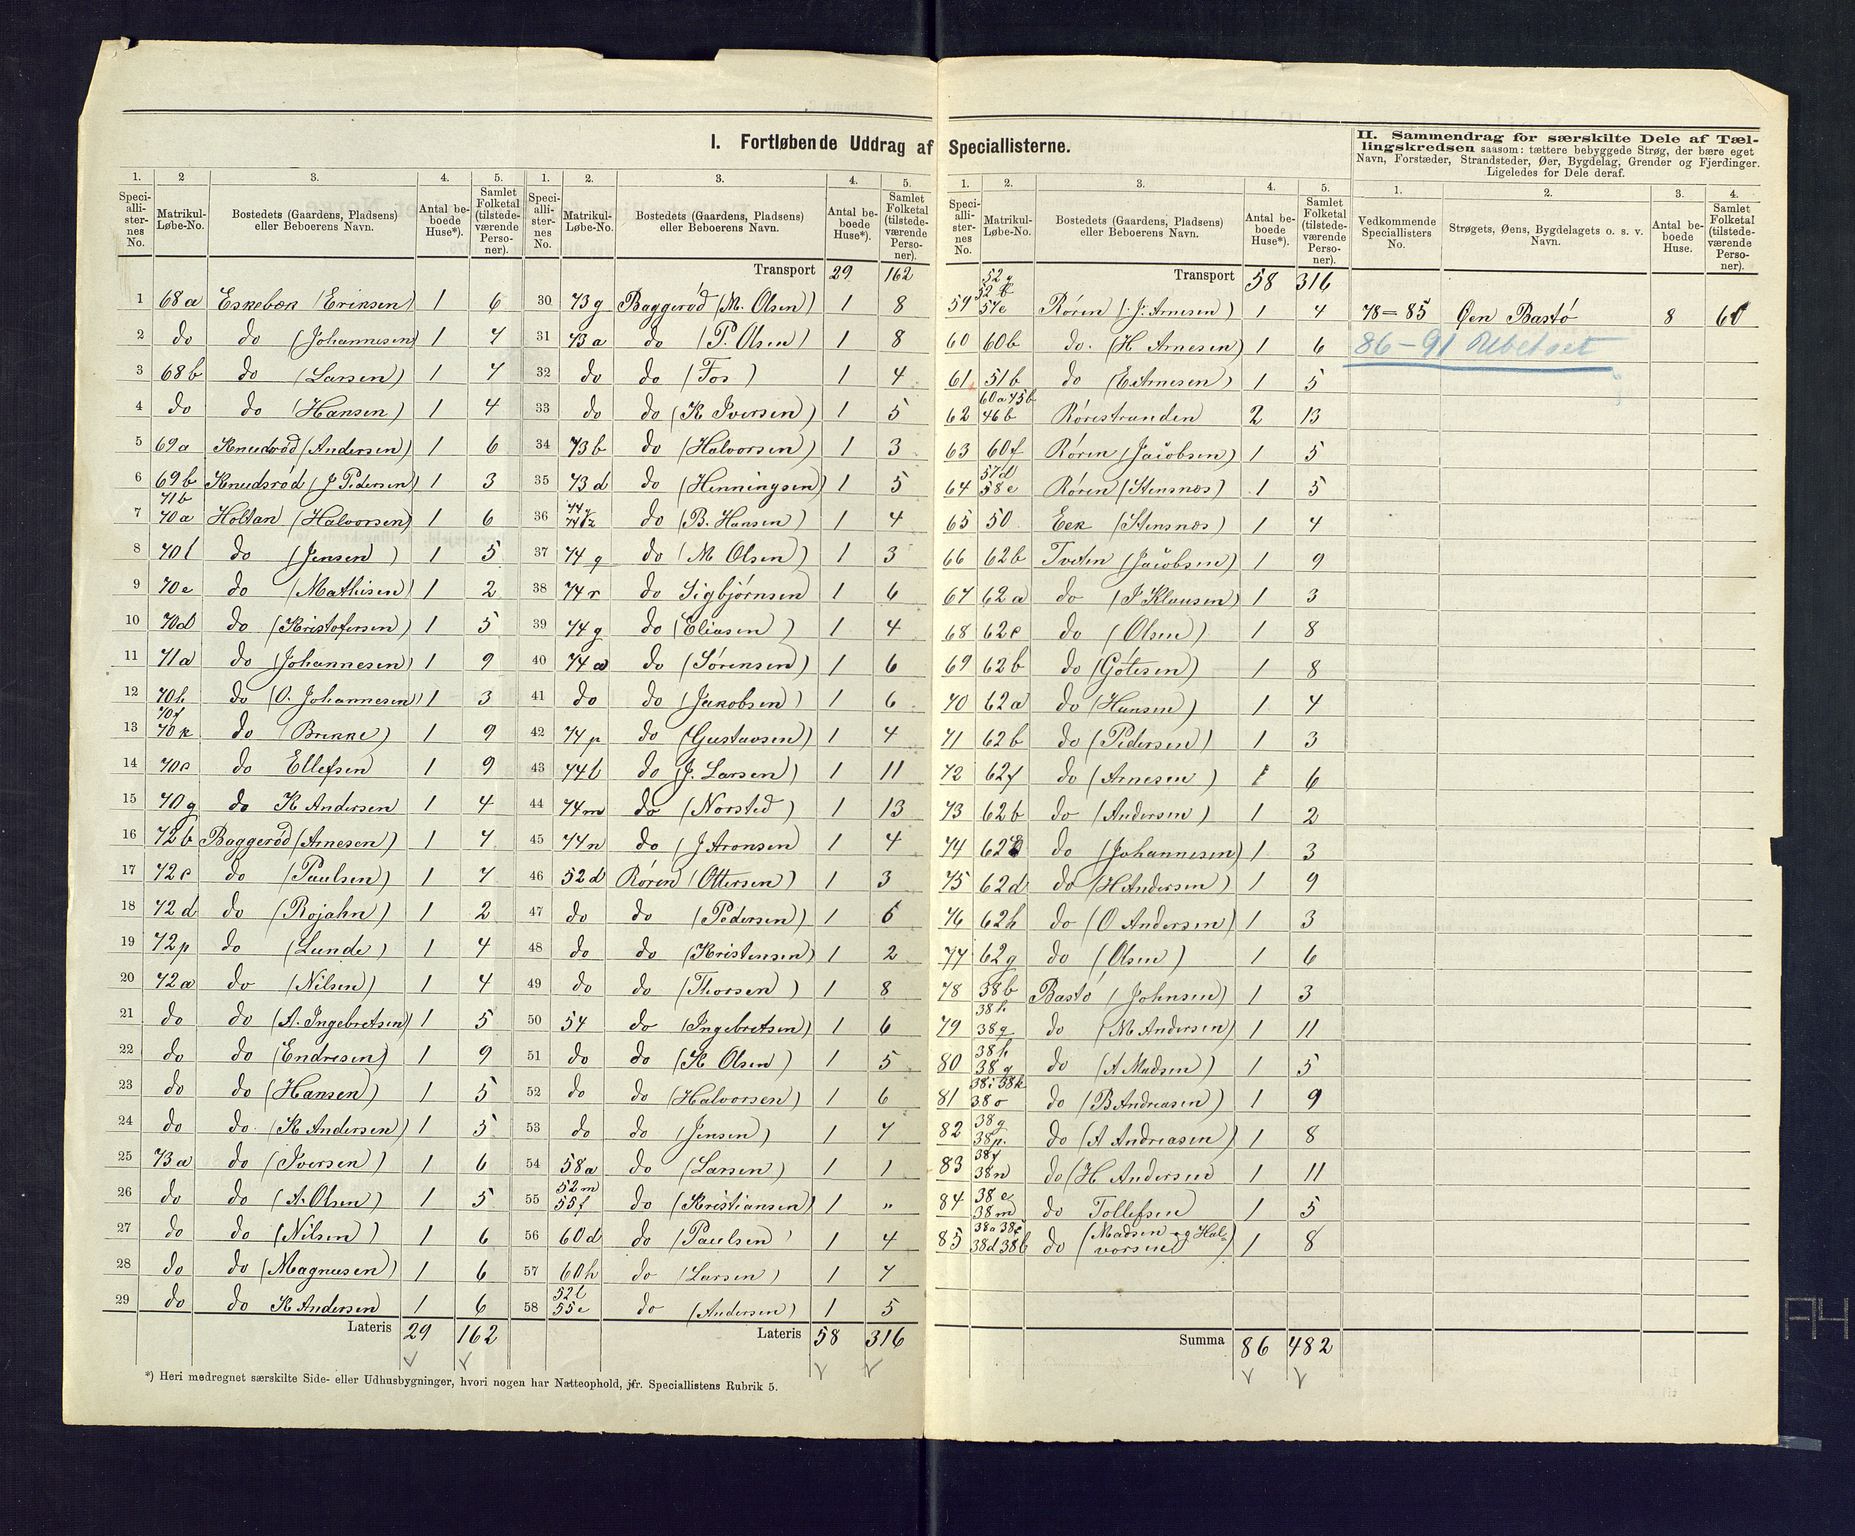 I. Fortløbende Uddrag af Speciallisterne.
1. 2 3. 4. 5.
Speciallisternes No. Matrikul-Løbe-No. Bostedets (Gaardens, Pladsens) eller Beboerens Navn. Antal beboede Huse*). Samlet Folketal (tilstedeværende Personer).
1 68a Eskebæk (Eriksen) 1 6
2 do do (Johannesen) 1 7
3 68b do (Larsen) 1 7
4 do do (Hansen) 1 4
5 69a Knudsrød (Andersen) 1 6
6 69b Knudsrød (J Pedersen) 1 3
7 71b 70a Holtan (Halvorsen) 1 6
8 70l do (Jensen) 1 5
9 70e do (Mathisen) 1 2
10 70d do (Kristofersen) 1 5
11 71a do (Johannesen) 1 9
12 70h do (O. Johannesen) 1 3
13 70f 70k do (Brekke) 1 9
14 70c do Ellefsen 1 9
15 70g do K Andersen 1 4
16 72b Baggerød (Arnesen) 1 7
17 72c do (Paulsen) 1 7
18 72d do (Rojahn) 1 2
19 72p do (Lunde) 1 4
20 72a do (Nilsen) 1 4
21 do do (A. Ingebretsen) 1 5
22 do do (Endresen) 1 9
23 do do (Hansen) 1 5
24 do do (K Andersen) 1 5
25 73a do (Iversen) 1 6
26 do do (A. Olsen) 1 5
27 do do (Nilsen) 1 6
28 do do (Magnusen) 1 6
29 do do K Andersen 1 6
Lateris 29 162
*) Heri medregnet særskilte Side- eller Udhusbygninger, hvori nogen har Natteophold, jfr. Speciallistens Rubrik 5.
1. 2. 3. 4. 5.
Speciallisternes No. Matrikul-Løbe-No. Bostedets (Gaardens, Pladsens) eller Beboerens Navn. Antal beboede Huse*). Samlet Folketal (tilstedeværende Personer).
Transport 29 162
30 73g Baggerød (M. Olsen) 1 8
31 73a do (P. Olsen) 1 8
32 do do (Fos) 1 4
33 do do (K Iversen) 1 5
34 73b do (Halvorsen) 1 3
35 73d do (Henningsen) 1 5
36 do (B. Hansen) 1 4
37 74g do (M Olsen) 1 3
38 74r do Sigbjørnsen 1 6
39 74g do (Eliasen) 1 4
40 74a do (Sørensen) 1 6
41 do do (Jakobsen) 1 6
42 74p do (Gustavsen) 1 4
43 74l do (J. Larsen) 1 11
44 74m do (Norsted) 1 13
45 74n do (J Aronsen 1 4
46 52d Røren (Ottersen) 1 3
47 do do (Pedersen) 1 6
48 do do (Kristensen) 1 2
49 do do (Thorsen) 1 8
50 54 do (Ingebretsen) 1 6
51 do do (K Olsen) 1 5
52 do do (Halvorsen) 1 6
53 do do (Jensen) 1 7
54 58a do (Larsen) 1 1
55 52m 55f do (Kristiansen) 1 "
56 60d do (Paulsen) 1 4
57 60h do (Larsen) 1 7
58 52l 55e do (Andersen) 1 5
Lateris 58 316
1. 2. 3. 4. 5.
Speciallisternes No. Matrikul-Løbe-No. Bostedets (Gaardens, Pladsens) eller Beboerens Navn. Antal beboede Huse*). Samlet Folketal (tilstedeværende Personer).
Transport 58 316
59 57e Røren (J. Arnesen) 1 4
60 60b do. (H Arnesen) 1 6
61 51b do (E Arnesen) 1 5
62 60a 45b 46b Rørestranden 2 13
63 60f Røren (Jacobsen) 1 5
64 57d 58e Røren (Stensnæs) 1 5
65 50 Eek (Stensnæs) 1 4
66 62b Tveten (Jacobsen) 1 9
67 62a do (P Klausen) 1 3
68 62c do (Olsen) 1 8
69 62b do (Gøtesen) 1 8
70 62a do (Hansen) 1 4
71 62b do (Pedersen) 1 3
72 62f do (Arnesen) 1 6
73 62b do (Andersen) 1 2
74 do (Johannesen) 1 3
75 62d do (H Andersen) 1 9
76 62h do (O Andersen) 1 3
77 62g do (Olsen) 1 6
78 38b Bastø (Johnsen) 1 3
79 38h 38g do (M Andersen) 1 11
80 38h 38g do (A Madsen) 1 5
81 38i 38k 38o do (B Andreasen) 1 9
82 38g 38p. do (A Andreasen) 1 8
83 38f 38n do (H Andersen 1 11
84 38e 38m do Tollefsen 1 5
85 38a 38c 38d 38b do (Madsen og Halvorsen) 1 8
Summa 86 482
II. Sammendrag for særskilte Dele af Tællingskredsen saasom: tættere bebyggede Strøg, der bære eget
Navn, Forstæder, Strandsteder, Øer, Bygdelag, Grender og Fjerdinger.
Ligeledes for Dele deraf.
1. 2. 3. 4.
Vedkommende Speciallisters No. Strøgets, Øens, Bygdelagets o. s. v. Navn. Antal beboede Huse. Samlet Folketal (tilstedeværende Personer).
78–85 Øen Bastø 8 60
86–91 Ubetset